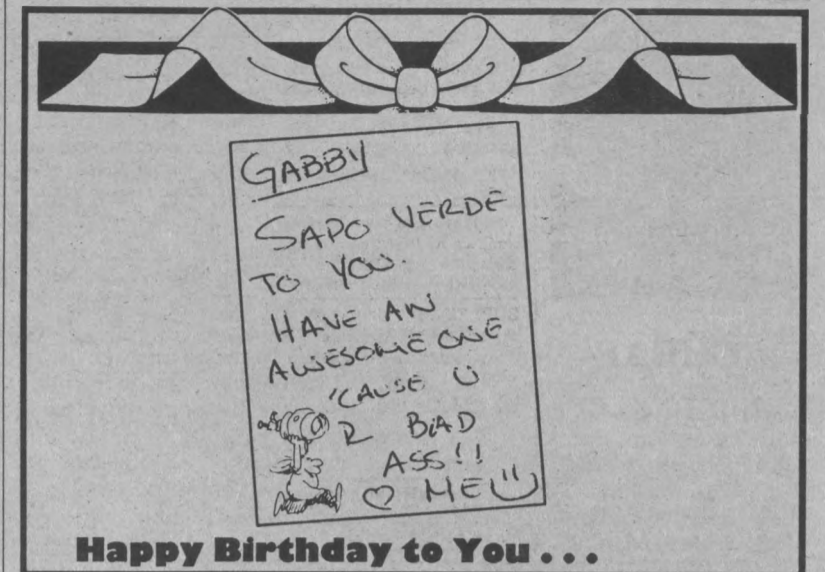 GABBY
SAPO VERDE
TO YOU.
HAVE AN
AWESOME ONE
'CAUSE U
R BAD
ASS!!
♡ ME
Happy Birthday to You . . .